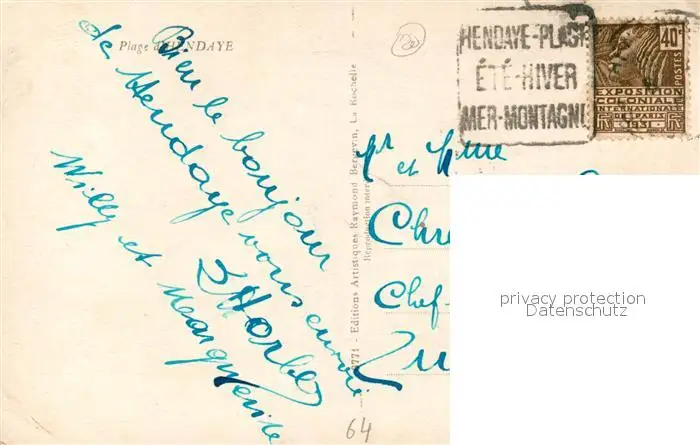 Plage d'HENDAYE
Bien le bonjour
de Hendaye vous envoie
Willy et Marguerite
30
HENDAYE-PLAGE
ÉTÉ-HIVER
MER-MONTAGNE
40c
POSTES
EXPOSITION
COLONIALE
INTERNATIONALE
PARIS
1931
Mr et Mme
Chr
Chef-
8771 - Editions Artistiques Raymond Bergevin, La Rochelle
Reproduction inter
privacy protection
Datenschutz
64